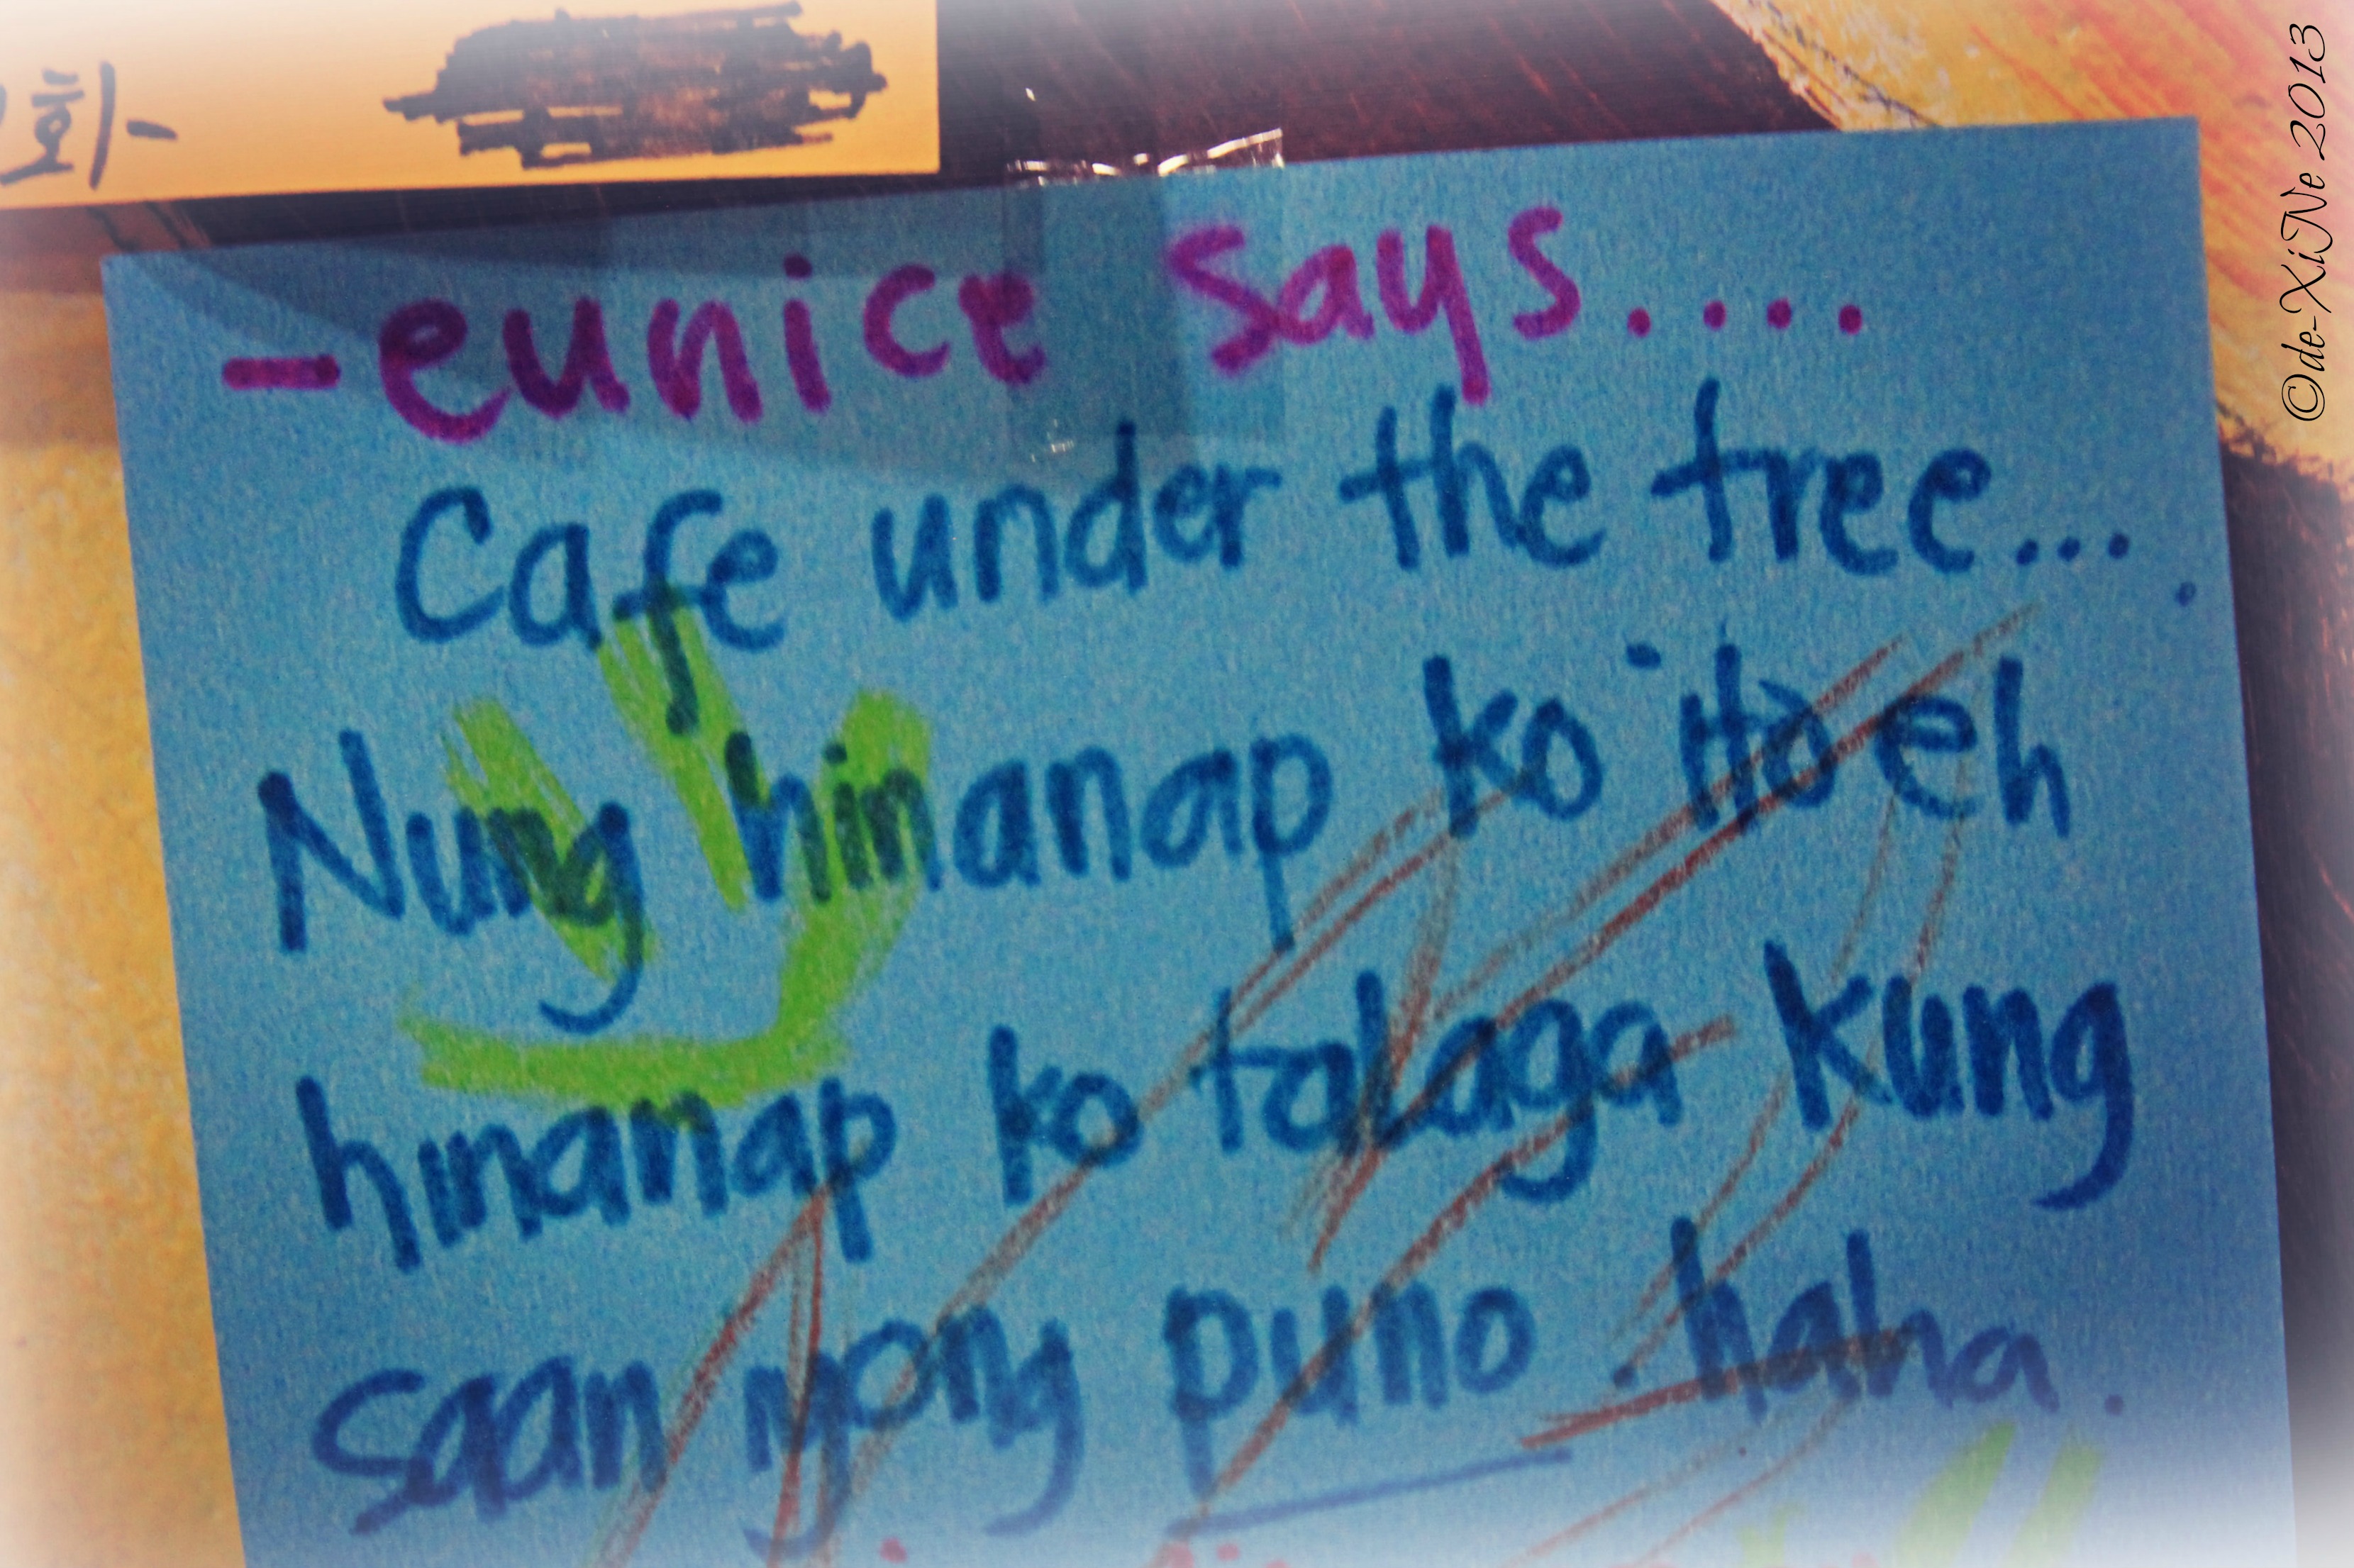 화-
-eunice says....
Cafe under the tree....
Nung hinanap ko ito eh
hinanap ko talaga kung
saan yong puno. haha.
©de-XiNe 2013